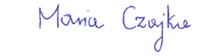 Maria Czajka